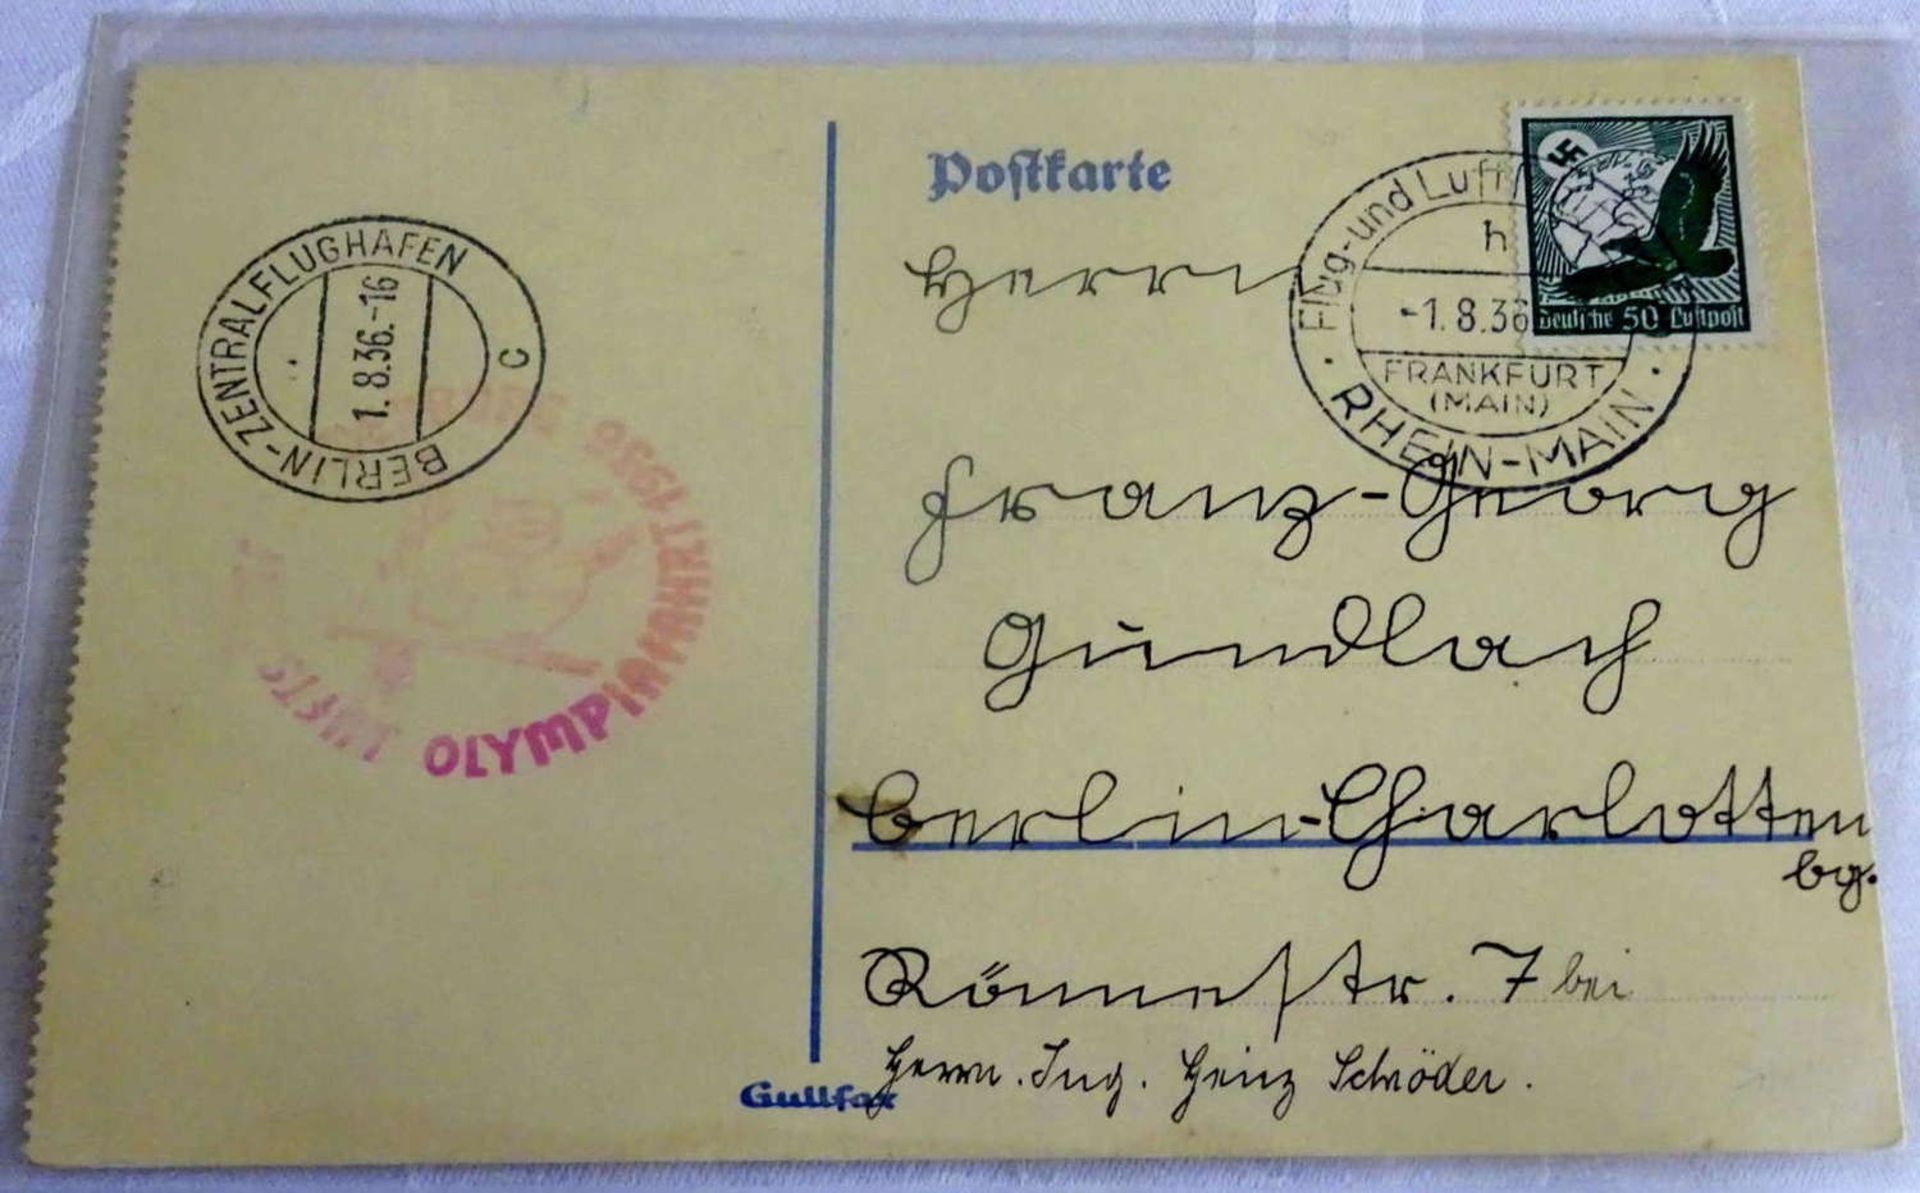 Postkarte
BERLIN-ZENTRALFLUGHAFEN
1.8.36.-16
c
OLYMPIAFAHRT 1936
LUFTSCHIFF
Flug-und Luft
h
-1.8.36
FRANKFURT
(MAIN)
RHEIN-MAIN
Deutsche 50 Luftpost
Herrn
Franz-Georg
Gundlach
Berlin-Charlotten
bg.
Rönnestr. 7 bei
Herrn. Ing. Heinz Schröder.
Gullfax